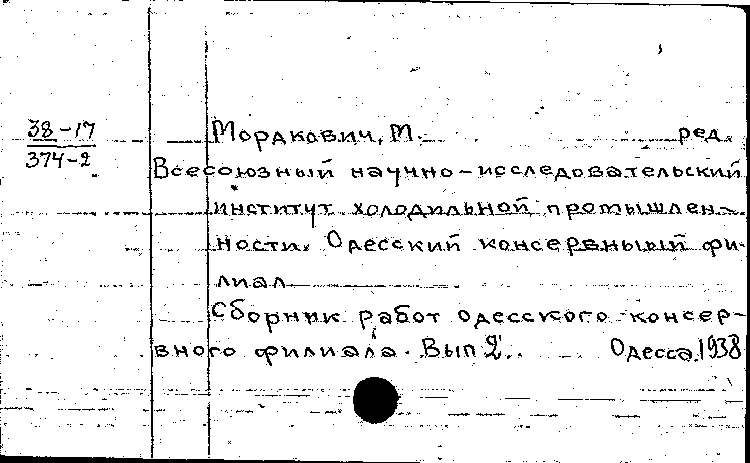 38-17
374-2
Мордкович, М. ред.
Всесоюзный научно-исследовательский
институт холодильной промышлен-
ности. Одесский консервный фи-
лиал
Сборник работ одесского консер-
вного филиала. Вып 2. Одесса, 1938